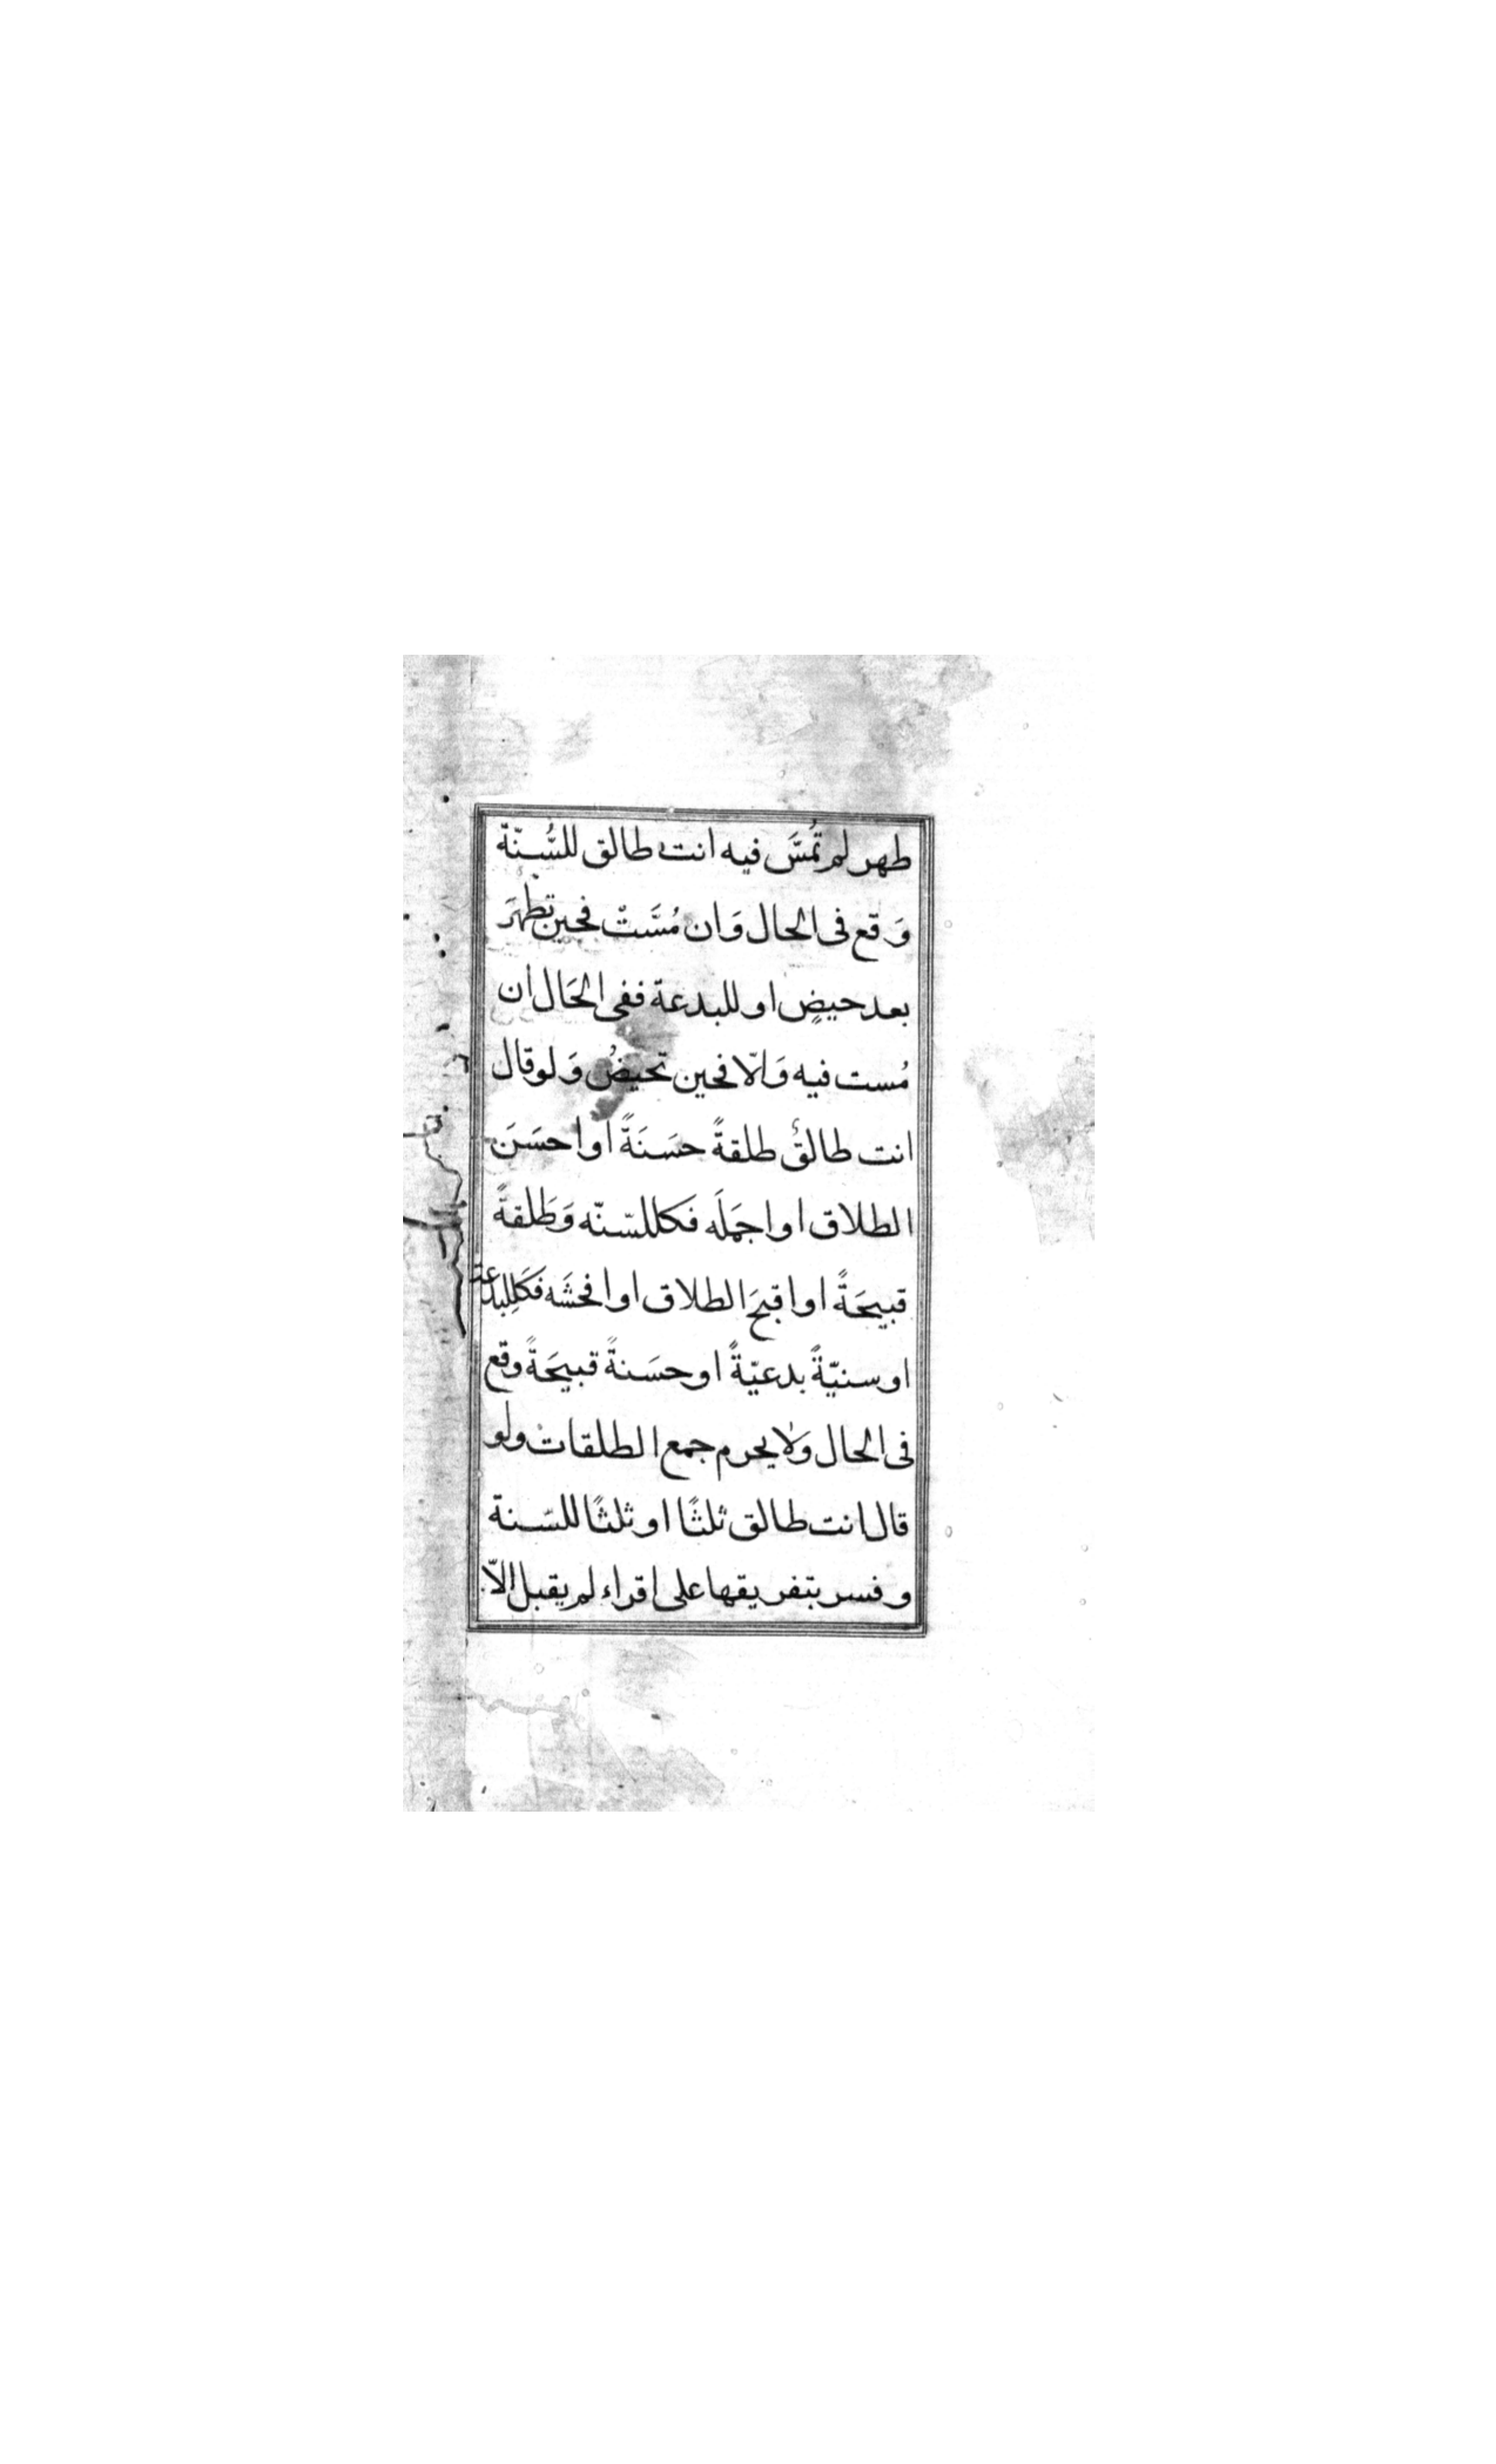 طهر لم تُمسَّ فيه انت طالق للسُّنّة
وَقع فى الحال وَان مُسَّتْ فحين تطهرَ
بعد حيضٍ او للبدعة ففى الحَال ان
مُست فيه وَالّا فحين تحيضُ وَلو قال
انت طالقٌ طلقةً حسَنَةً او احسَنَ
الطلاق او اجملَه فَكللسّنّه وَطَلقةً
قبيحَةً او اقبحَ الطلاق او افحشَه فَكَلِلبدعة
او سنيّةً بدعيّةً او حسَنةً قبيحَةً وقع
فى الحال وَلا يحرم جمع الطلقات ولو
قال انت طالق ثلثًا او ثلثًا للسّنة
و فسر بتفريقها على اقراء لم يقبل الّا